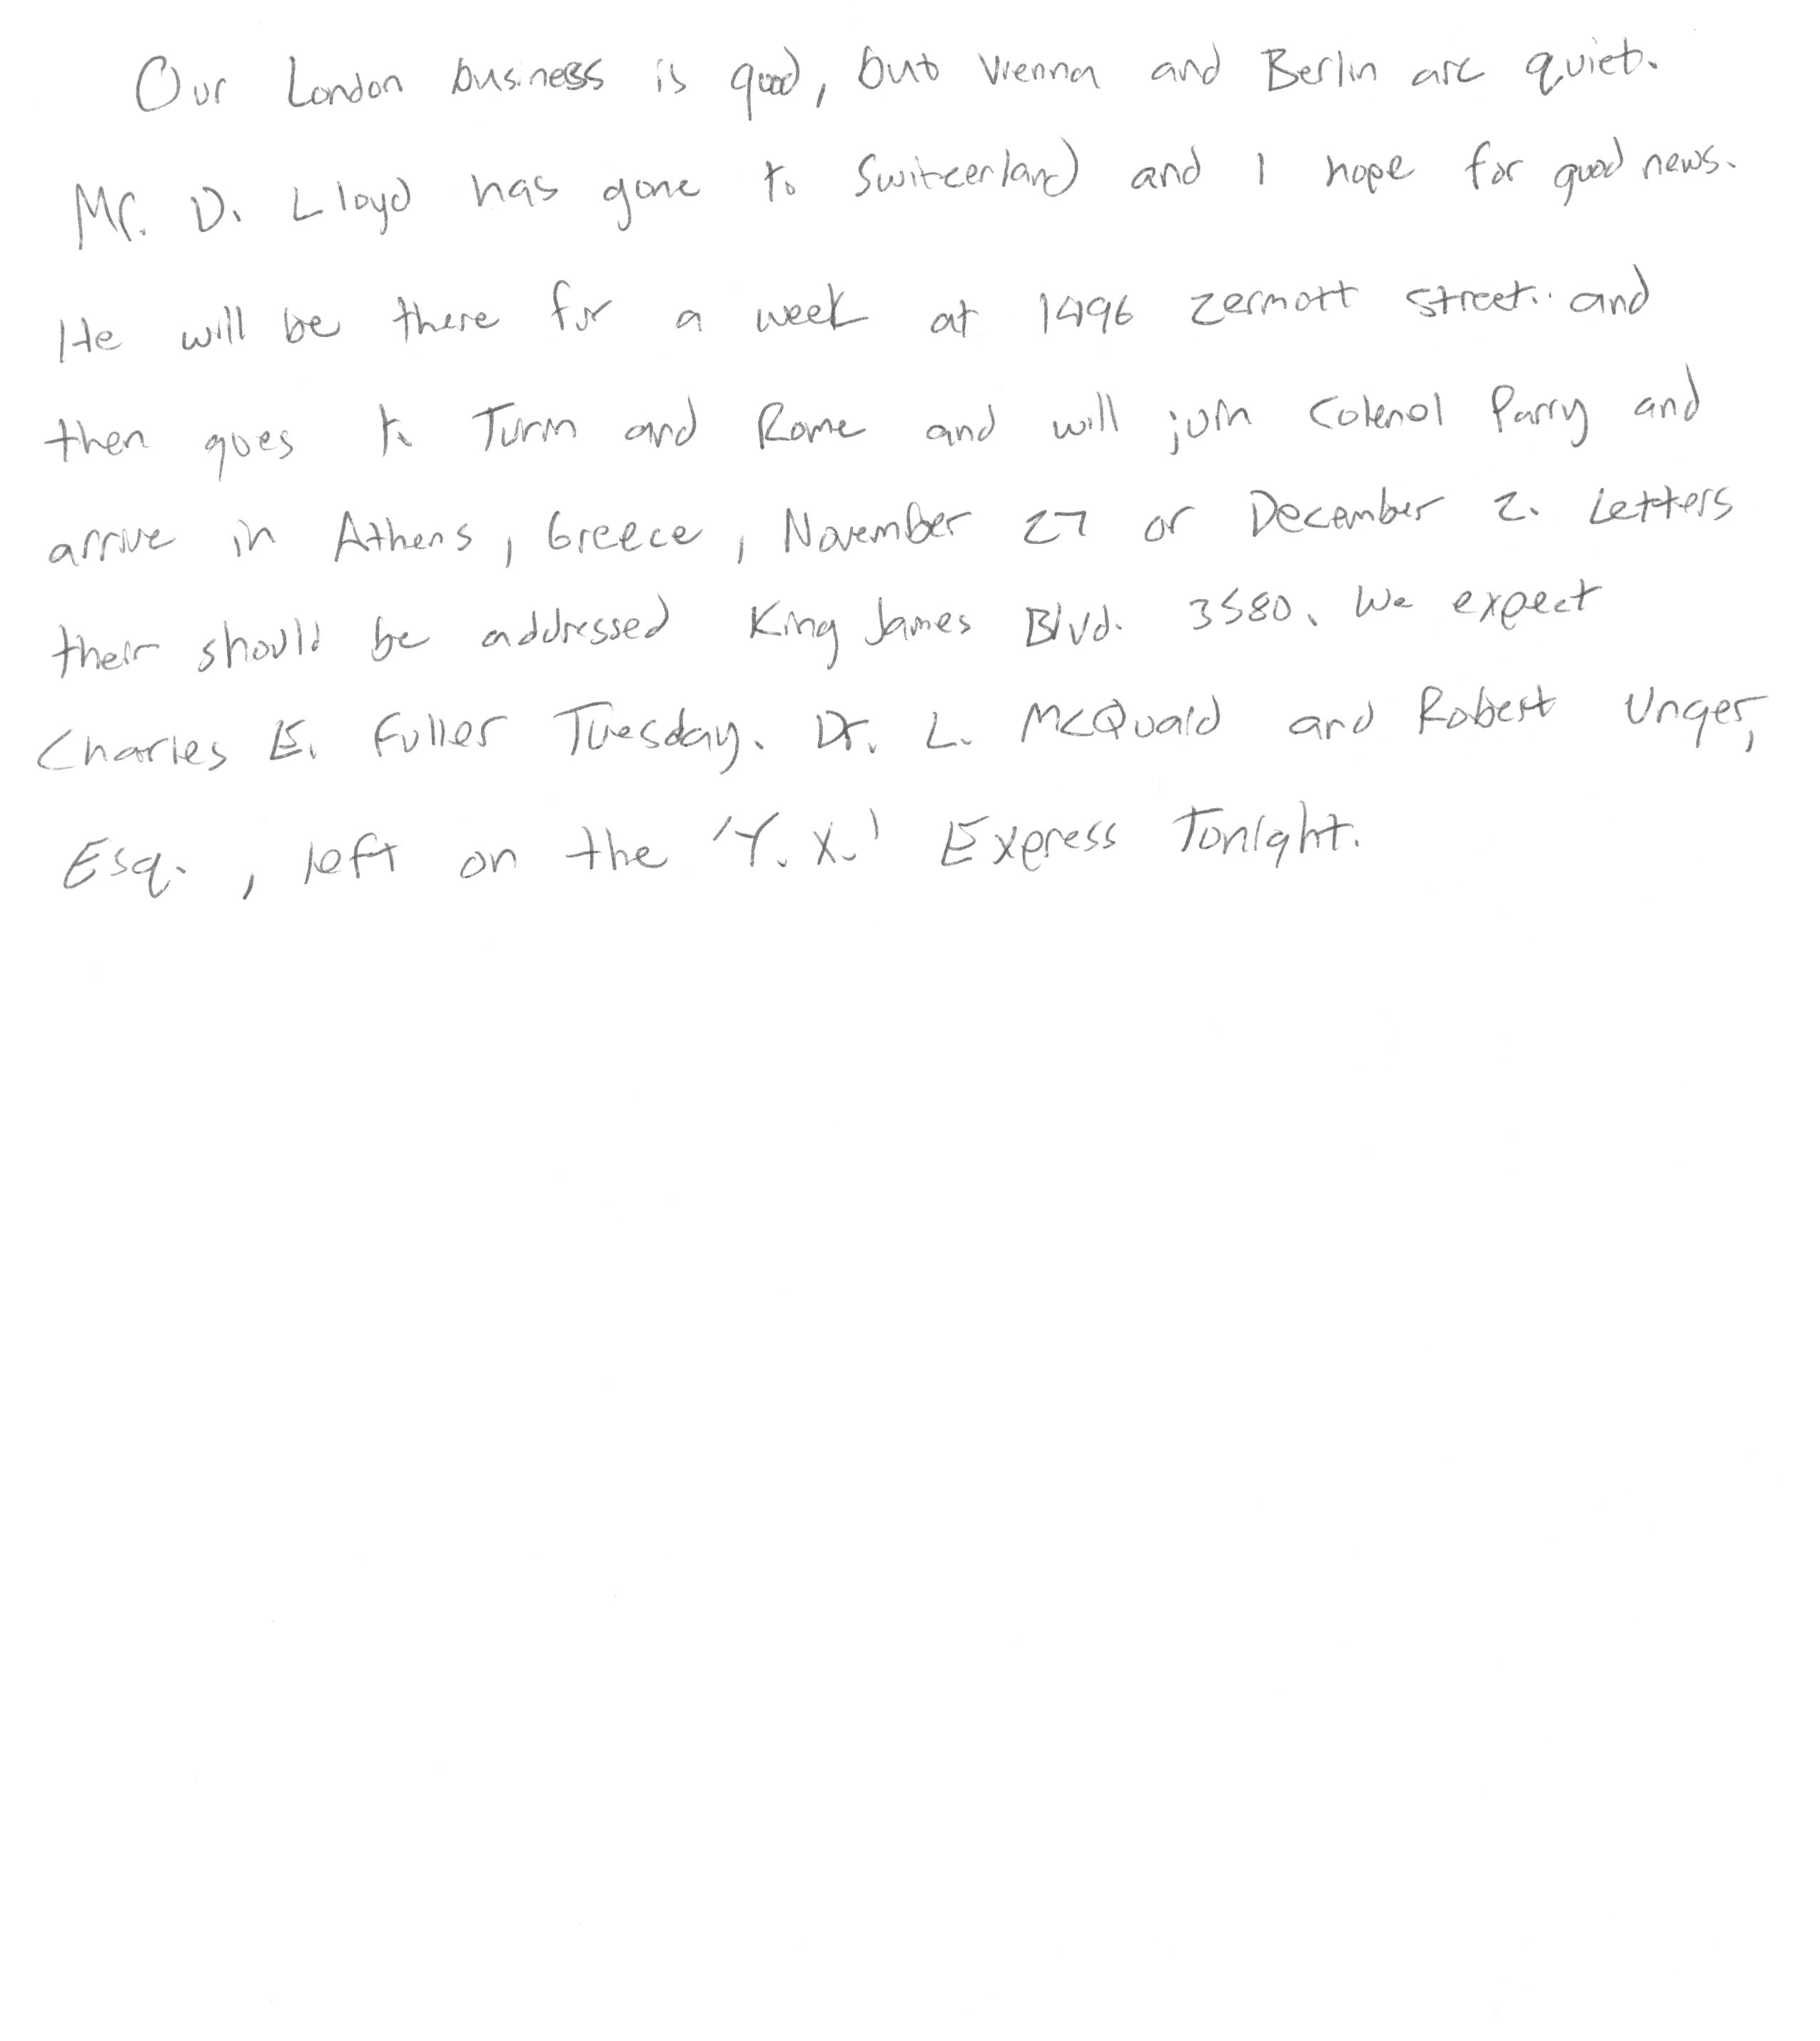 Our London business is good, but Vienna and Berlin are quiet.
Mr. D. Lloyd has gone to Switzerland and I hope for good news.
He will be there for a week at 1496 Zermott street.. and
then goes to Turin and Rome and will join Colenol Parry and
arrive in Athens, Greece, November 27 or December 2. Letters
their should be addressed King James Blvd. 3580. We expect
Charles E. Fuller Tuesday. Dr. L. McQuaid and Robert Unger,
Esq., left on the 'Y.X.' Express Tonight.